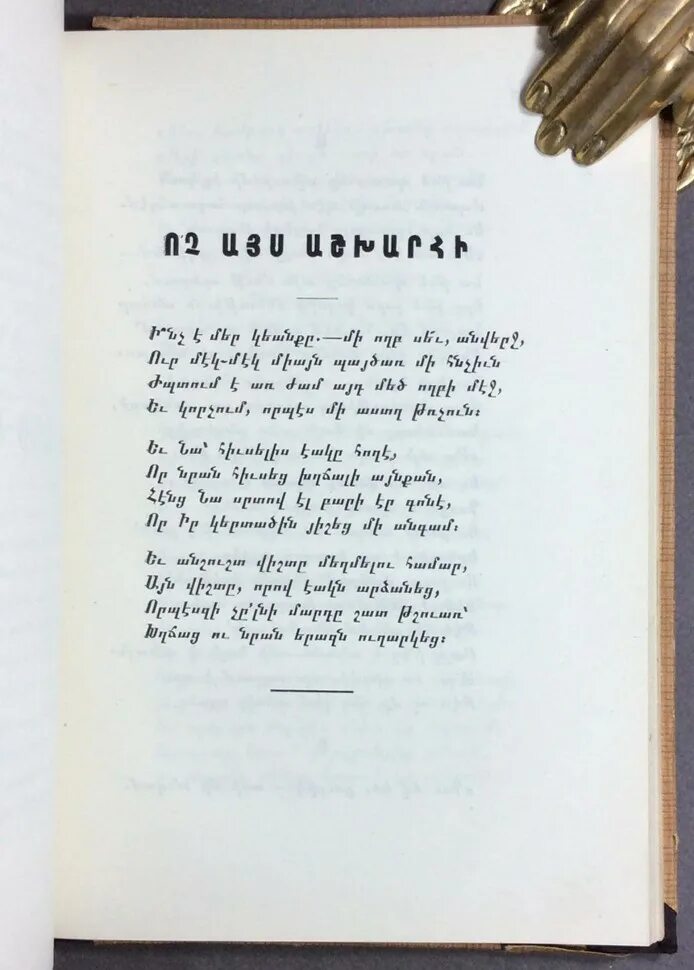 Ո՛Չ ԱՅՍ ԱՇԽԱՐՀԻ
Ի՞նչ է մեր կեանքը.—մի ողբ սեւ, անվերջ,
Ուր մէկ-մէկ միայն պայծառ մի հնչիւն
Ժպտում է առ ժամ այդ մեծ ողբի մէջ,
Եւ կորչում, որպէս մի աստղ թռչուն։
Եւ Նա՝ հիւսելիս էակը հողէ,
Որ նրան հիւսեց խղճալի այնքան,
Հէնց Նա սրտով էլ բարի էր գոնէ,
Որ Իր կերտածին յիշեց մի անգամ։
Եւ անշուշտ վիշտը մեղմելու համար,
Այն վիշտը, որով էակն արձանեց,
Որպէսզի չը՛լնի մարդը շատ թշուառ՝
Խղճաց ու նրան երազն ուղարկեց։